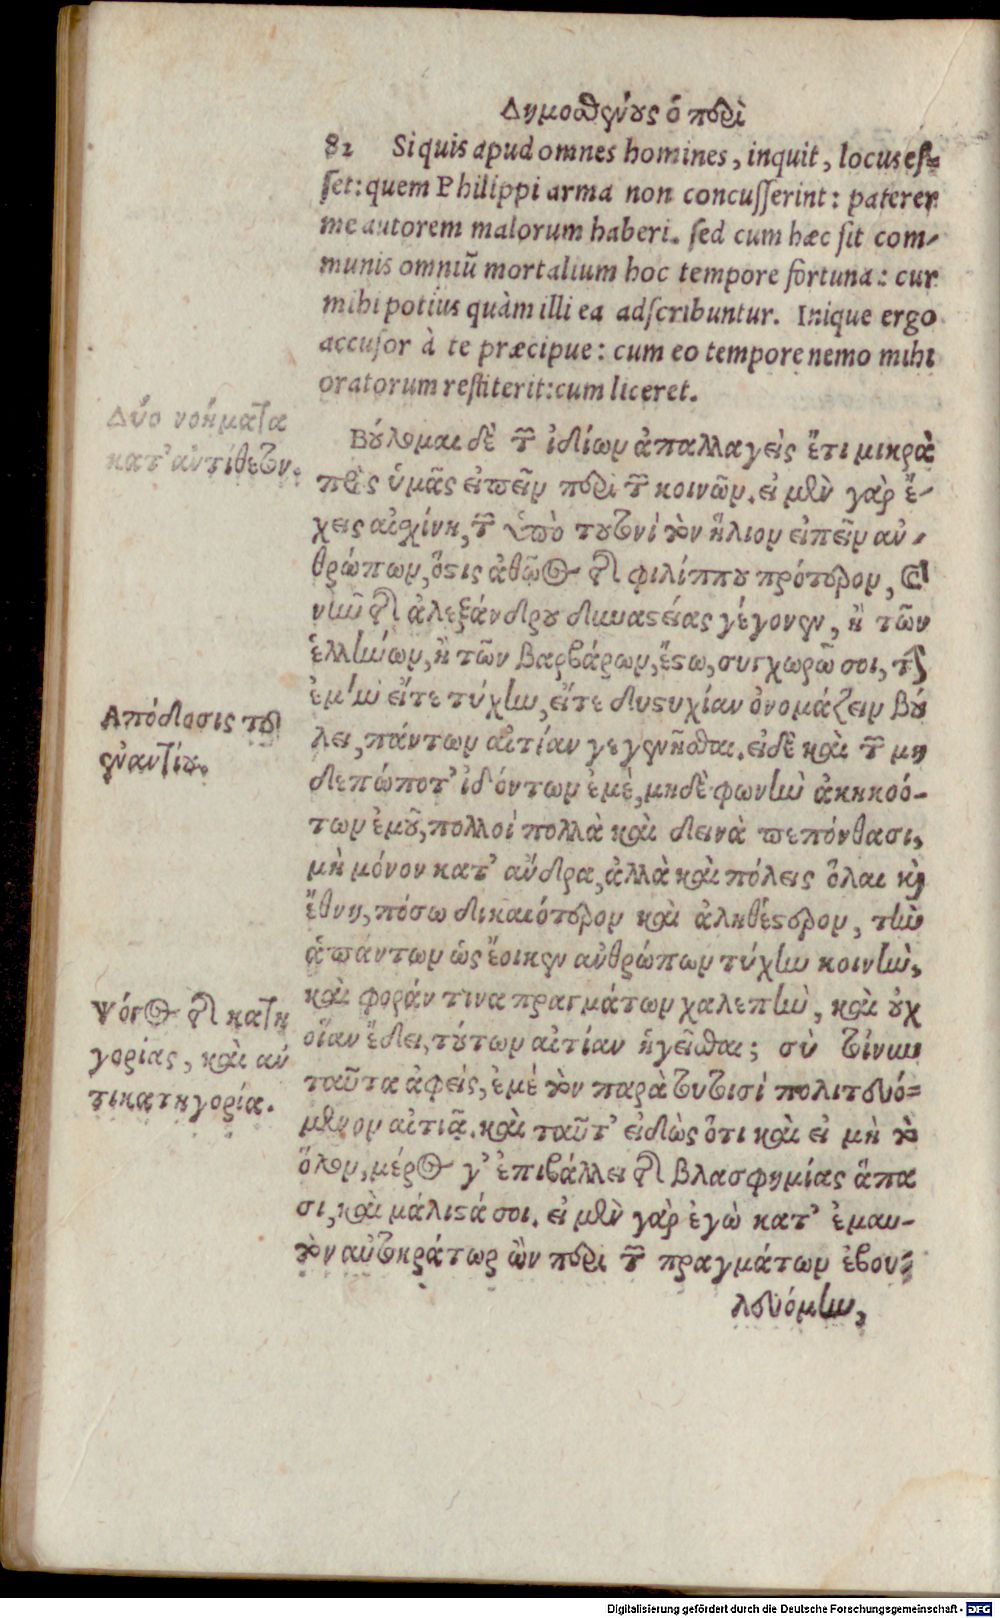 Δημοσθένους ὁ περὶ
82 Si quis apud omnes homines, inquit, locus eſ=
ſet: quem Philippi arma non concuſſerint: paterer
me autorem malorum haberi. ſed cum hæc ſit com-
munis omniũ mortalium hoc tempore fortuna: cur
mihi potius quàm illi ea adſcribuntur. Inique ergo
accuſor à te præcipue: cum eo tempore nemo mihi
oratorum reſtiterit: cum liceret.
Δύο νοήματα
κατ' ἀντίθεσιν.
Βούλομαι δὲ τῶν ἰδίων ἀπαλλαγεὶς ἔτι μικρὰ
πρὸς ὑμᾶς εἰπεῖν περὶ τῶν κοινῶν. εἰ μὲν γὰρ ἔ-
χεις αἰσχίνη, τῶν ὑπὸ τουτονὶ τὸν ἥλιον εἰπεῖν ἀν-
θρώπων, ὅστις ἀθῶος τῆς φιλίππου πρότερον, καὶ
νῦν τῆς ἀλεξάνδρου δυναστείας γέγονεν, ἢ τῶν
ἑλλήνων, ἢ τῶν βαρβάρων, ἔστω, συγχωρῶ σοι, τὴν
ἐμὴν εἴτε τύχην, εἴτε δυστυχίαν ὀνομάζειν βού
λει, πάντων αἰτίαν γεγενῆσθαι. εἰ δὲ καὶ τῶν μη
Ἀπόδοσις τοῦ
ἐναντίου.
δεπώποτ' ἰδόντων ἐμὲ, μηδὲ φωνὴν ἀκηκοό-
των ἐμοῦ, πολλοὶ πολλὰ καὶ δεινὰ πεπόνθασι,
μὴ μόνον κατ' ἄνδρα, ἀλλὰ καὶ πόλεις ὅλαι καὶ
ἔθνη, πόσω δικαιότερον καὶ ἀληθέστερον, τὴν
ἁπάντων ὡς ἔοικεν ἀνθρώπων τύχην κοινὴν,
καὶ φοράν τινα πραγμάτων χαλεπὴν, καὶ οὐχ
οἵαν ἔδει, τούτων αἰτίαν ἡγεῖσθαι; σὺ τοίνυν
Ψόγος τῆς κατη
γορίας, καὶ ἀν
τικατηγορία.
ταῦτα ἀφεὶς, ἐμὲ τὸν παρὰ τουτοισὶ πολιτευό=
μενον αἰτιᾷ. καὶ ταῦτ' εἰδὼς ὅτι καὶ εἰ μὴ τὸ
ὅλον, μέρος γ' ἐπιβάλλει τῆς βλασφημίας ἅπα
σι, καὶ μάλιστά σοι. εἰ μὲν γὰρ ἐγὼ κατ' ἐμαυ-
τὸν αὐτοκράτωρ ὢν περὶ τῶν πραγμάτων ἐβου-
λευόμην,
Digitalisierung gefördert durch die Deutsche Forschungsgemeinschaft - DFG